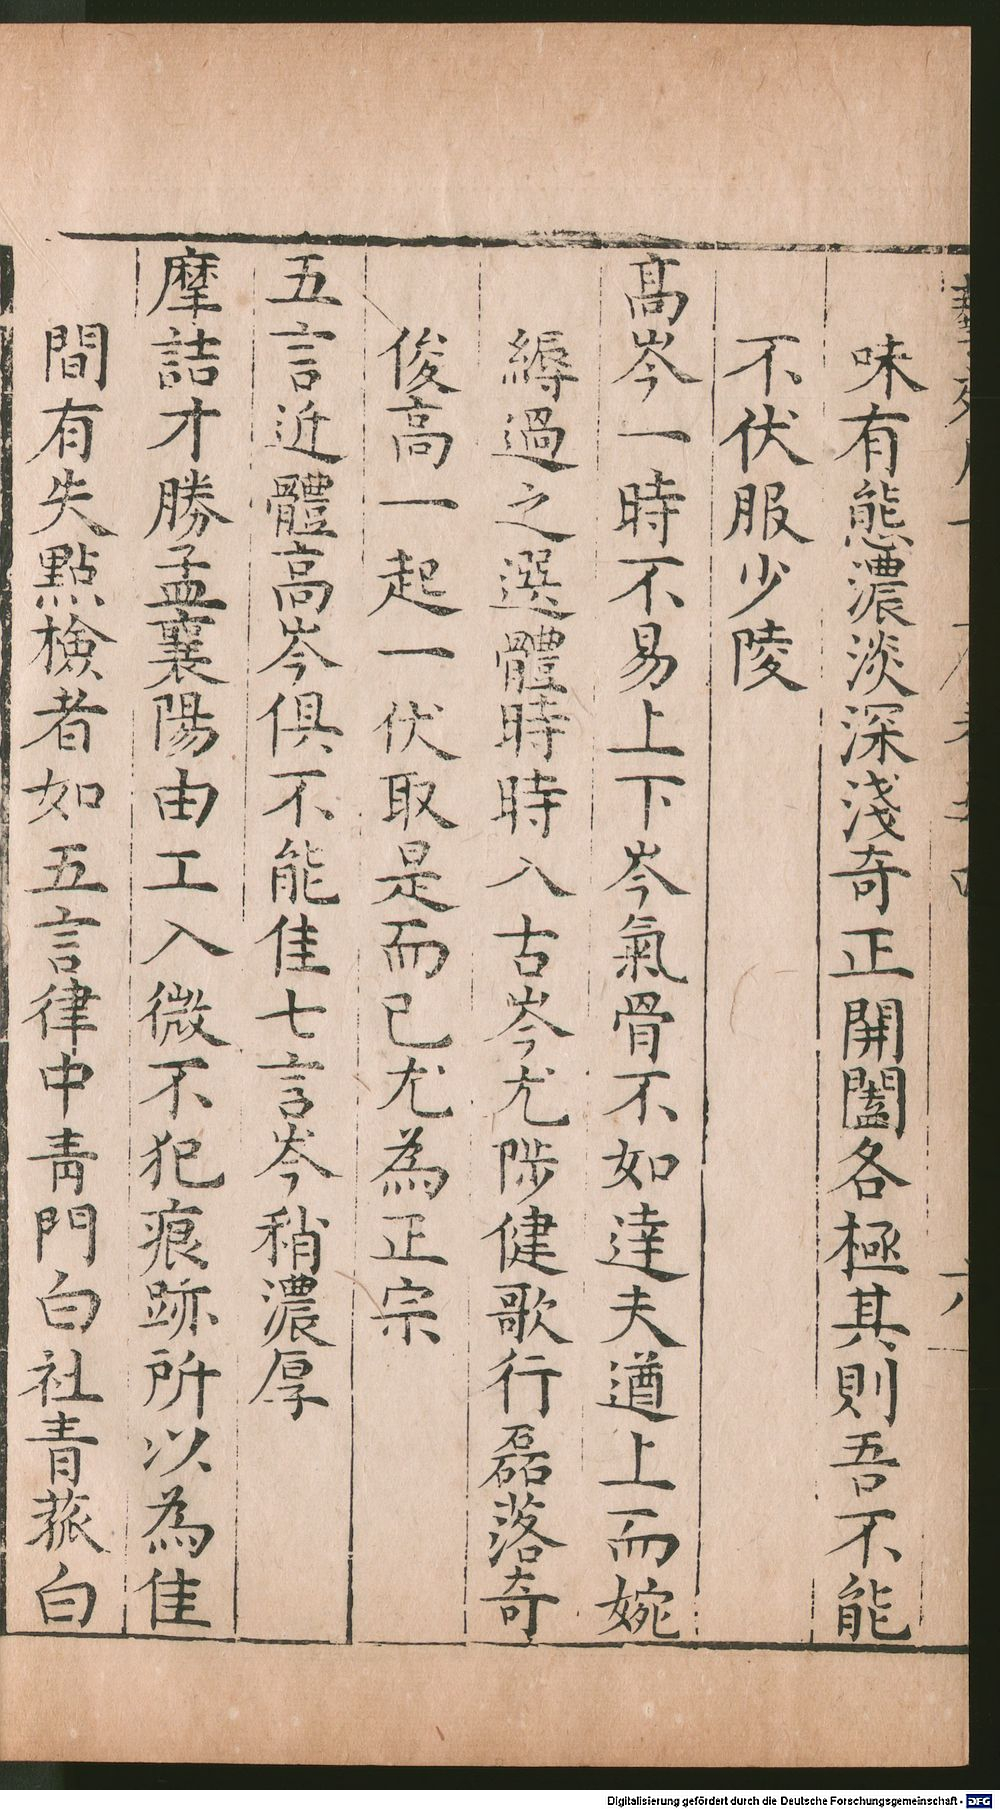 味有態濃淡深淺奇正開闔各極其則吾不能
不伏服少陵
高岑一時不易上下岑氣骨不如達夫遒上而婉
縟過之選體時時入古岑尤陟健歌行磊落奇
俊高一起一伏取是而已尤為正宗
五言近體高岑俱不能佳七言岑稍濃厚
摩詰才勝孟襄陽由工入微不犯痕跡所以為佳
間有失點檢者如五言律中青門白社青菰白
Digitalisierung gefördert durch die Deutsche Forschungsgemeinschaft - DFG